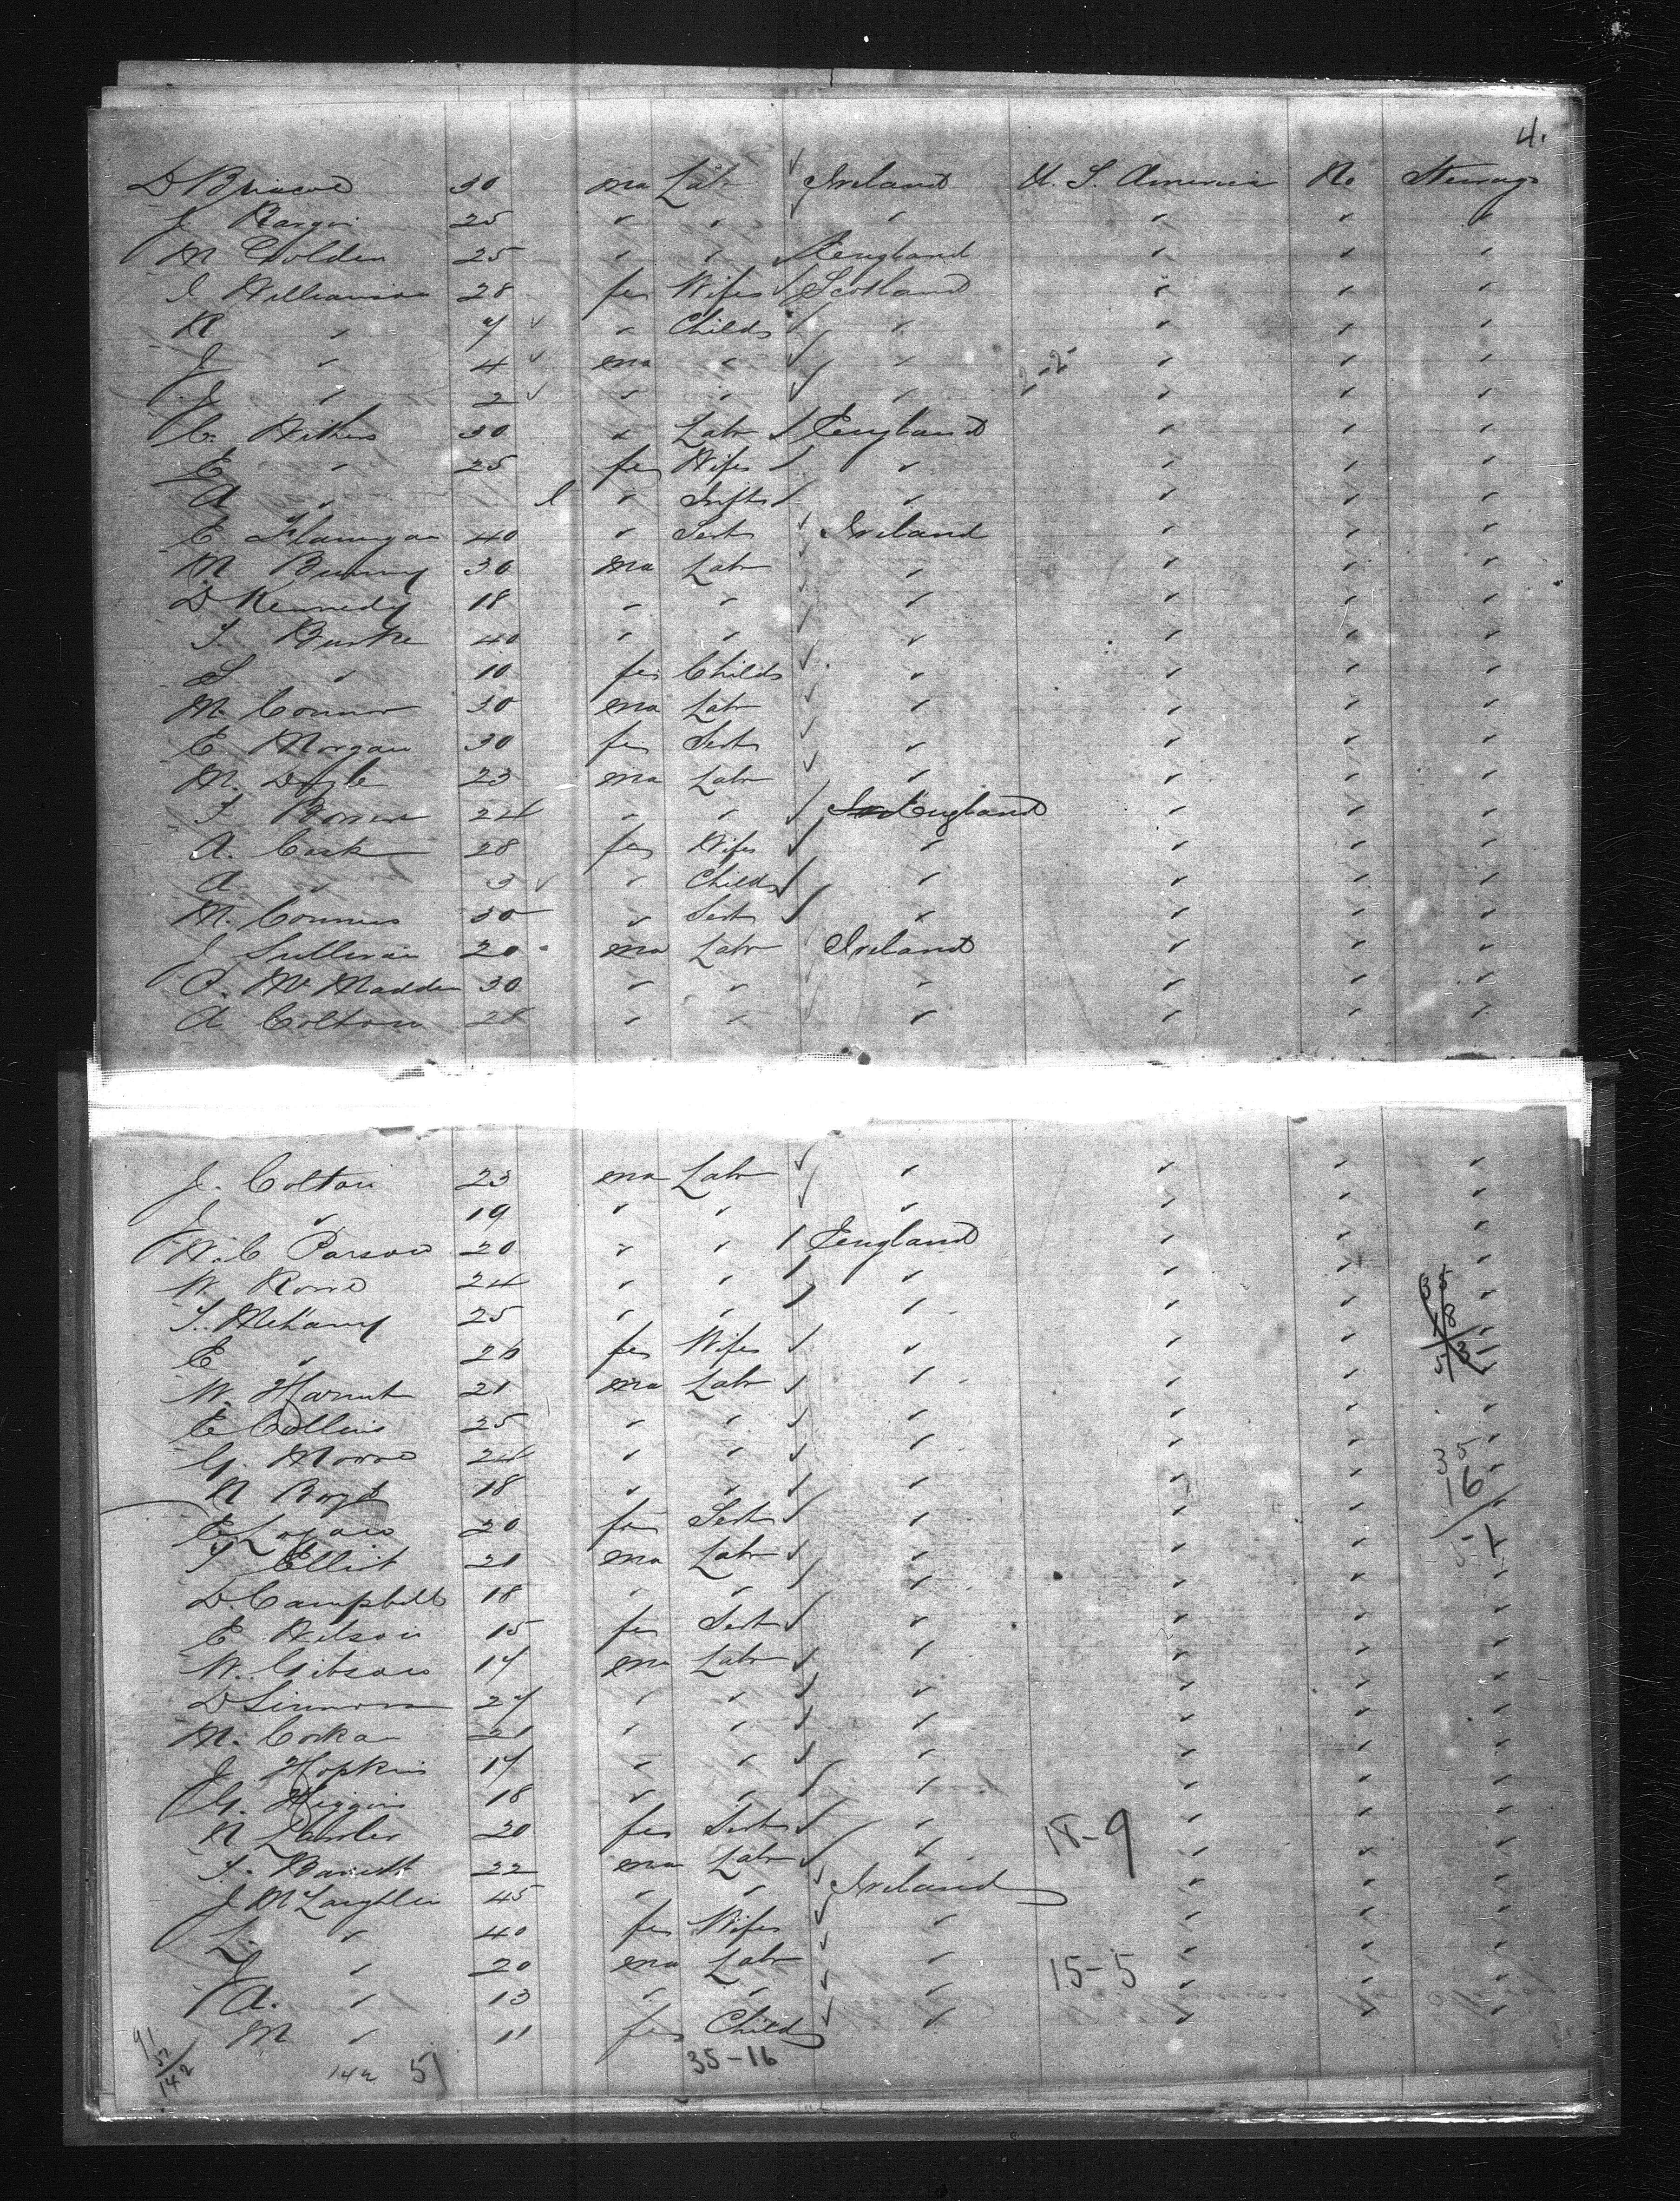 4.
D Briscoe 30 ma Labr Ireland U. S. America No Steerage
J. 25 " " " " " "
M Golden 25 " " England " " "
J Williamson 28 fe Wife Scotland " " "
R " 7 " Child " " " "
J " 4 ma " " " " "
J " 2 " " " " " "
C. Withers 30 " Labr England " " "
E " 25 fe Wife " " " "
A " 1 " Inft " " " "
E. Flannigan 40 " Sert Ireland " " "
M 30 ma Labr " " " "
D Kennedy 18 " " " " " "
T. Burke 40 " " " " " "
S " 10 fe Child " " " "
M. Connor 30 ma Labr " " " "
E. Morgan 30 fe Sert " " " "
M. Doyle 23 ma Labr " " " "
T 24 " " England " " "
A. Cork 28 fe Wife " " " "
A " 3 " Child " " " "
M. Connies 30 " Sert " " " "
J Sullivan 20 ma Labr Ireland " " "
P. McMadden 30 " " " " " "
A Colton 28 " " " " " "
J. Colton 23 ma Labr " " " "
J " 19 " " " " " "
W. C Parson 20 " " England " " "
W. Rowe 24 " " " " " "
T. 25 " " " " " "
E " 26 fe Wife " " " "
W. 21 ma Labr " " " "
E Collins 25 " " " " " "
G. 24 " " " " " "
N 18 " " " " " "
E Logan 20 fe Sert " " " "
T Elliot 21 ma Labr " " " "
D. Campbell 18 " " " " " "
E Wilson 15 fe Sert " " " "
W. Gibson 17 ma Labr " " " "
D 27 " " " " " "
M. Corkan 21 " " " " " "
J Hopkins 17 " " " " " "
G. Higgins 18 " " " " " "
N Lawler 20 fe Sert " " " "
T. Barrett 22 ma Labr " " " "
J McLaughlin 45 " " Ireland " " "
L. " 40 fe Wife " " " "
J " 20 ma Labr " " " "
A. " 13 " " " " " "
M " 11 fe Child " " " "
2-2
35
18
53
35
16
51
18-9
15-5
91
51
142
142 51
35-16